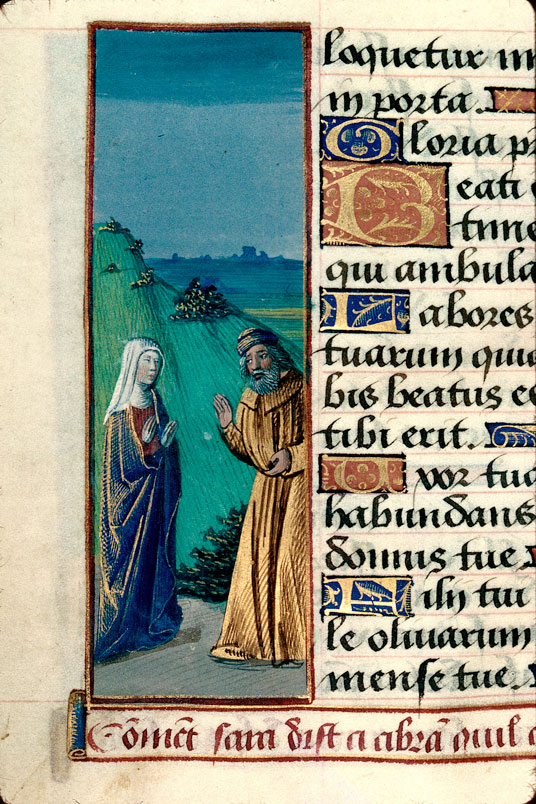 loquetur in
in porta.
Gloria p
Beati
time
qui ambula
Labores
tuarum quia
bis beatus es
tibi erit.
Uxor tua
habundans
domus tue
Filij tui
le oliuarum
mense tue.
Cōmēt sara dist a abrā quil